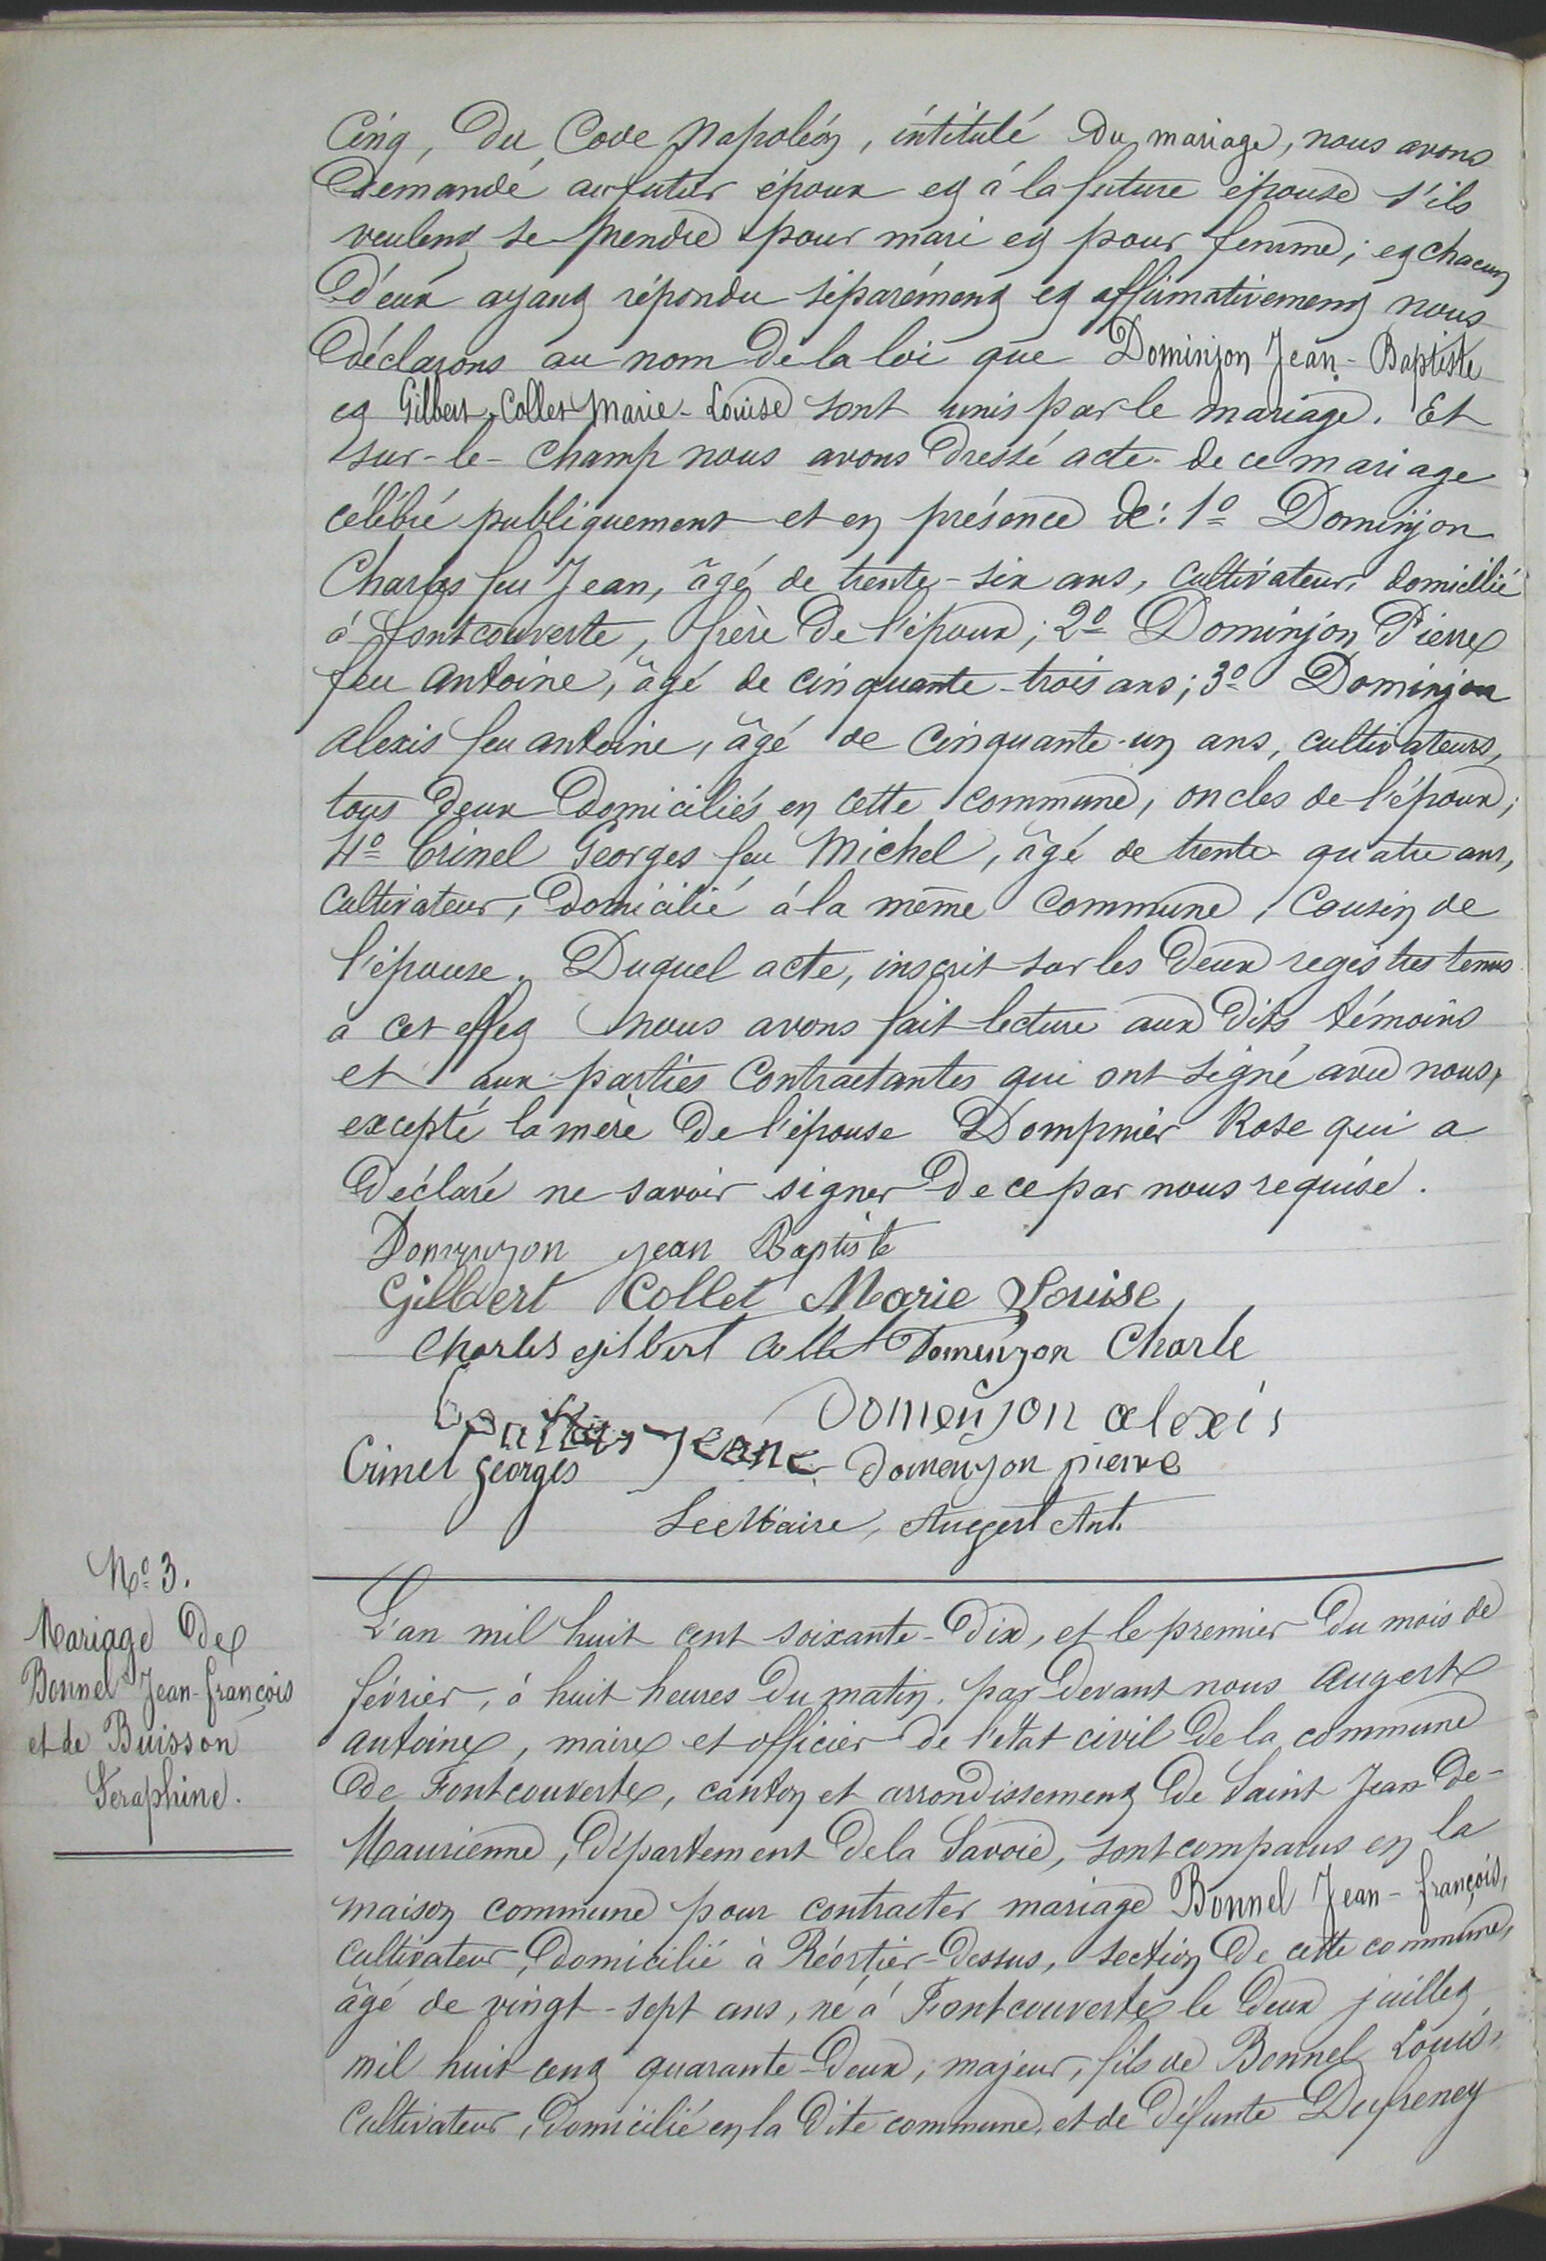 Cinq, du Code Napoléon, intitulé du mariage, nous avons
demandé au futur époux et à la future épouse s'ils
veulent se prendre pour mari et pour femme; et chacun
d'eux ayant répondu séparément et affirmativement nous
déclarons au nom de la loi que Dominjon Jean-Baptiste
et Gilbert-Collet Marie-Louise sont unis par le mariage. Et
sur-le-champ nous avons dressé acte de ce mariage
célébré publiquement et en présence de: 1º Dominjon
Charles feu Jean, âgé de trente-six ans, cultivateur, domicilié
à fontcouverte, frère de l'époux; 2º Dominjon Pierre
feu antoine, âgé de cinquante-trois ans; 3º Dominjon
alexis feu antoine, âgé de cinquante-un ans, cultivateurs,
tous deux domiciliés en cette commune, oncles de l'époux;
4º Crinel Georges feu Michel, âgé de trente-quatre ans,
cultivateur, domicilié à la même commune, cousin de
l'épouse. Duquel acte, inscrit sur les deux registres tenus
à cet effet nous avons fait lecture aux dits témoins
et aux parties contractantes qui ont signé avec nous,
excepté la mère de l'épouse Dompnier Rose qui a
déclaré ne savoir signer de ce par nous requise.
Domenjon jean Baptiste
Gilbert Collet Marie Louise
Charles gilbert collet Domenjon Charle
Domenjon alexis
Crinel georges Jeane Domenjon pierre
Le Maire, Augert Ant.
Nº 3.
Mariage de
Bonnel Jean-françois
et de Buisson
Seraphine.
L'an mil huit cent soixante-dix, et le premier du mois de
février, à huit heures du matin, par devant nous Augert
antoine, maire et officier de l'état civil de la commune
de Fontcouverte, canton et arrondissement de Saint Jean-de-
Maurienne, département de la Savoie, sont comparus en la
maison commune pour contracter mariage Bonnel Jean-françois,
cultivateur, domicilié à Réortier-dessus, section de cette commune,
âgé de vingt-sept ans, né à Fontcouverte le deux juillet
mil huit cent quarante-deux, majeur, fils de Bonnel Louis,
cultivateur, domicilié en la dite commune, et de défunte Dufreney